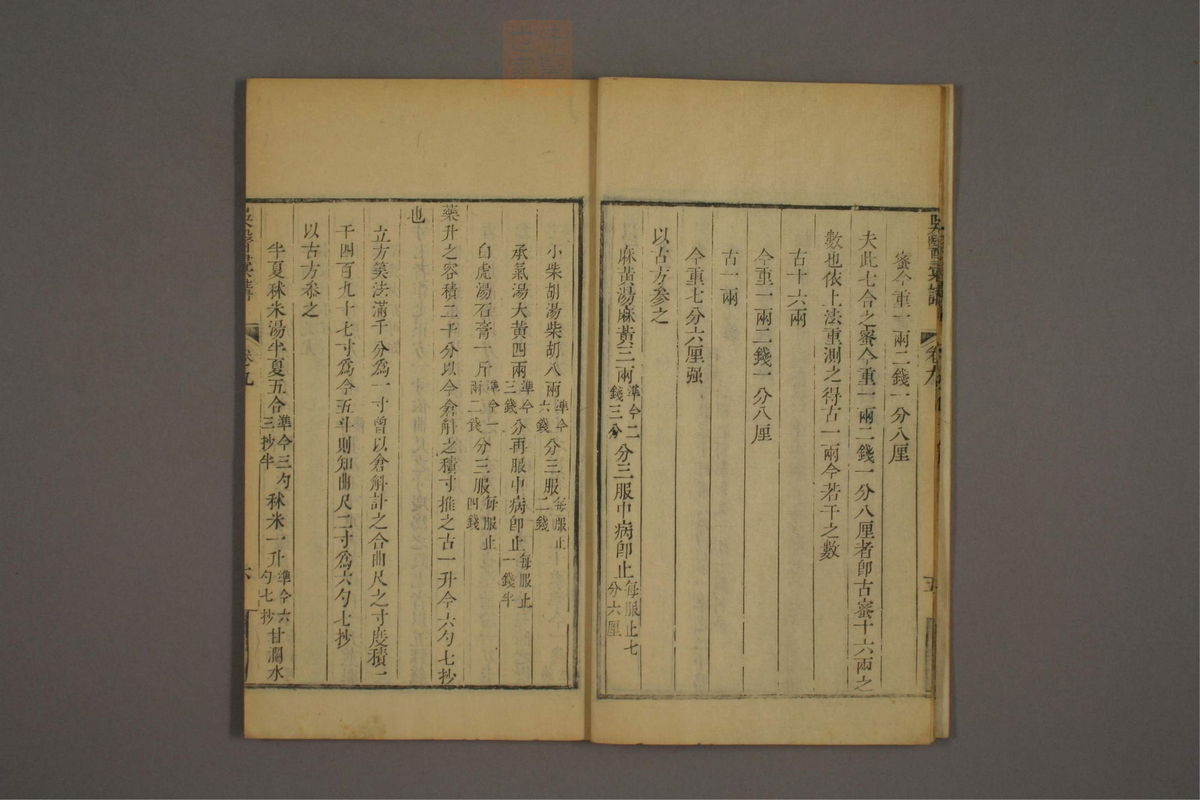 蜜今重一兩二錢一分八厘
夫此七合之蜜今重一兩二錢一分八厘者卽古蜜十六兩之
數也依上法重測之得古一兩今若干之數
古十六兩
今重一兩二錢一分八厘
古一兩
今重七分六厘强
以古方參之
麻黃湯麻黃三兩準今二錢三分分三服中病卽止每服止七分六厘
吳醫彙講
卷九
小柴胡湯柴胡八兩準今六錢分三服每服止二錢
承氣湯大黃四兩準今三錢分再服中病卽止每服止一錢半
白虎湯石膏一斤準今一兩二錢分三服每服止四錢
藥升之容積二十分以今倉斛之積寸推之古一升今六勺七抄
也
立方筭法滿千分爲一寸曾以倉斛計之合曲尺之寸度積一
千四百九十七寸爲今五斗則知曲尺二寸爲六勺七抄
以古方叅之
半夏秫米湯半夏五合準今三勺三抄半秫米一升準今六勺七抄甘瀾水
吳醫彙講
卷九
六